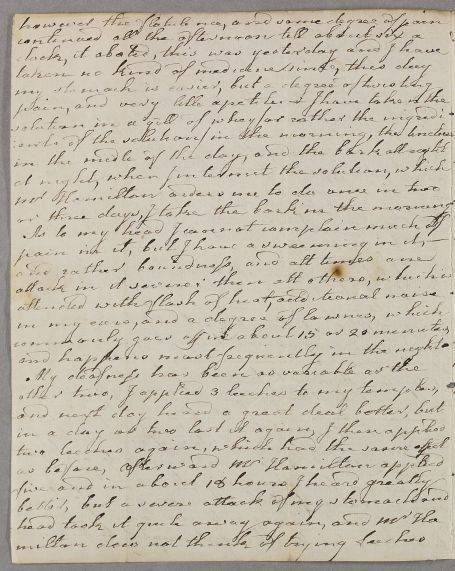 however the flatulence, and some degree of pain
continued all the afternoon till about six a
clock, it abated, this was yesterday and I have
taken no kind of medicine since, this day
my stomach is easier, but a degree of twisting
pain, and very little apetite I have taken the
solution in a gill of whey (or rather the ingredi
ents of the solution) in the morning, the tincture
in the midle of the day, and the bark all night
at night, when I intermit the solution, which
Mr Hamilton orders me to do once in two
or three days, I take the bark in the morning
As to my head I cannot complain much of
pain in it, but I have a swimming in it,
and rather boundness, and att times one
attack in it severer then att others, which is
attended with flash of heat, additional noise
in my ears, and a degree of lowness, which
commonly goes off in about 15 or 20 minutes
and happens most frequently in the night
My deafness has been as variable as the
other two, I applied 3 leeches to my temples,
and next day heard a great deal better, but
in a day or two lost it again, I then applied
two leeches again, which had the same effect
as before, afterward Mr Hamilton applied
five and in about 18 hours I heard greatly
better, but a severe attack of my stomach and
head took it quite away again, and Mr Ha
milton does not think of trying leeches